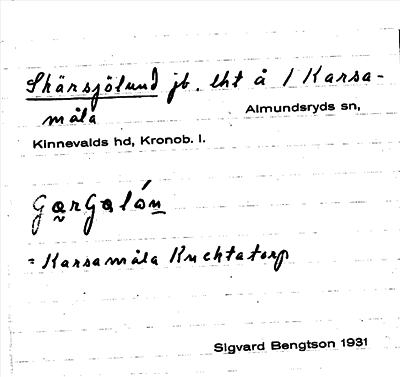 Skärsjölund jb. lht å 1 Karsa-
måla Almundsryds sn,
Kinnevalds hd, Kronob. l.
= Karsamåla Knektatorp
Sigvard Bengtson 1931